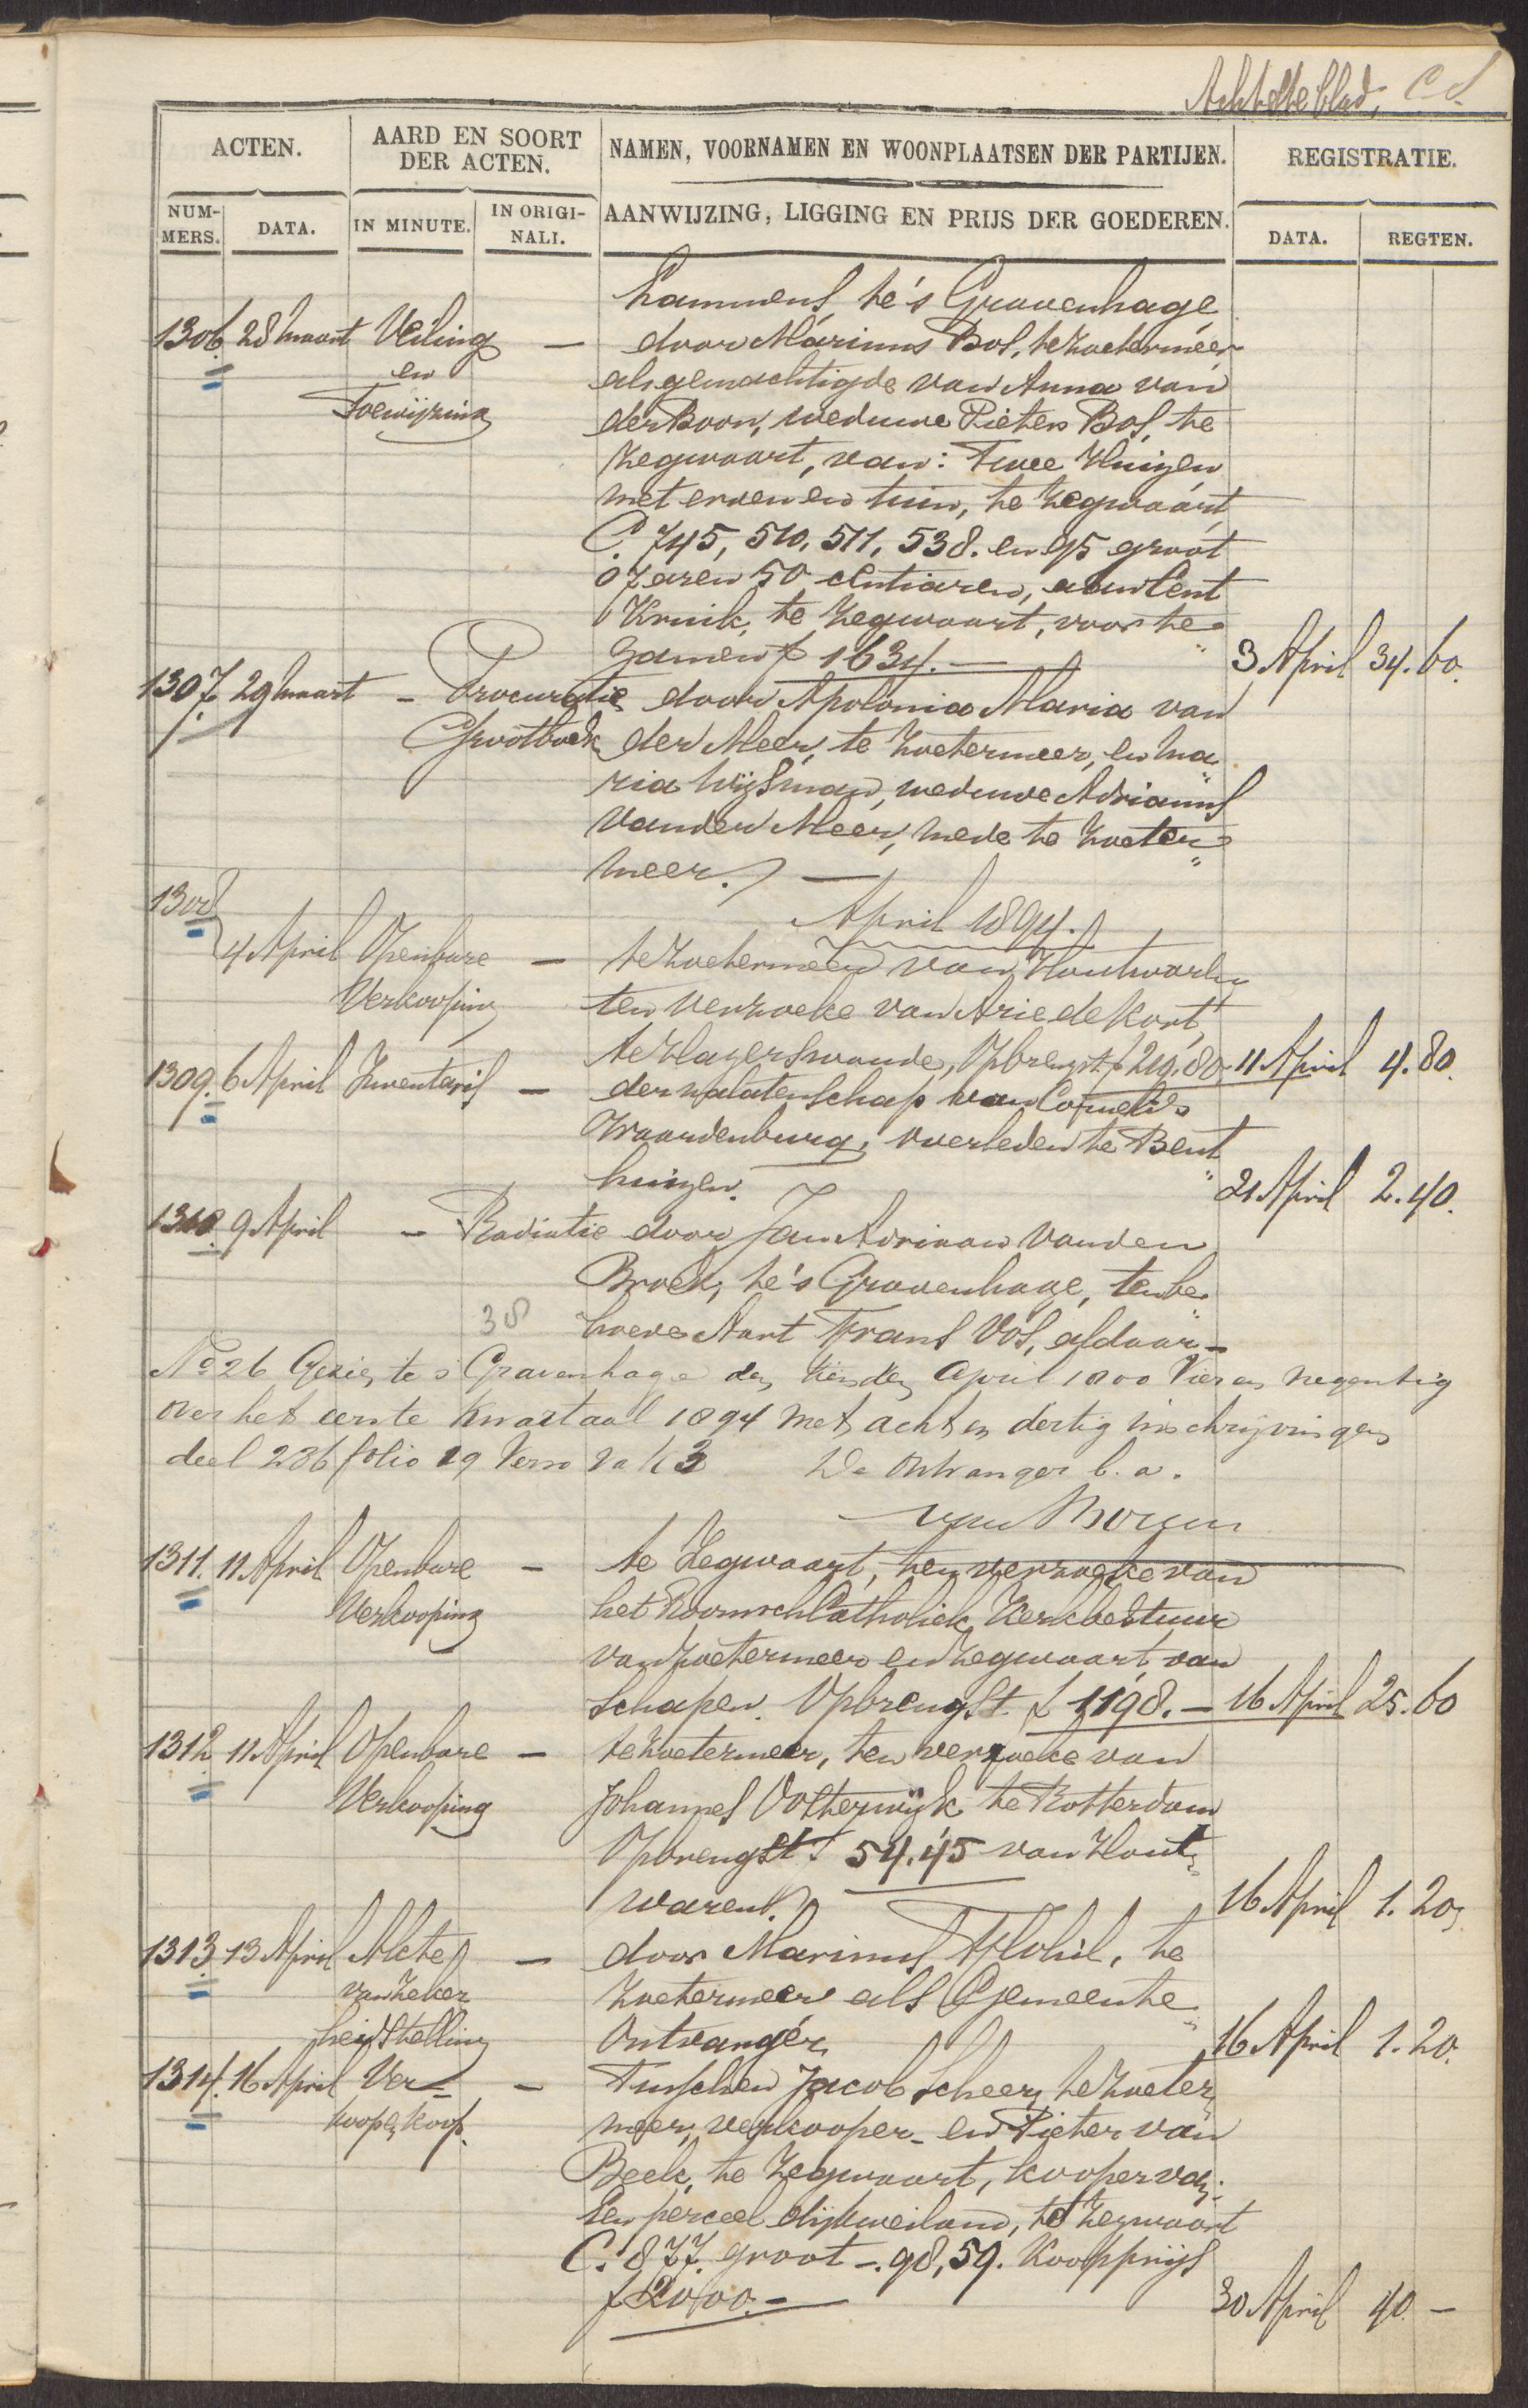 Achtste blad,
ACTEN.
AARD EN SOORT DER ACTEN.
NAMEN, VOORNAMEN EN WOONPLAATSEN DER PARTIJEN.
REGISTRATIE.
NUMMERS.
DATA.
IN MINUTE.
IN ORIGINALI.
AANWIJZING, LIGGING EN PRIJS DER GOEDEREN.
DATA.
REGTEN.
te 's Gravenhage
1306. 28 Maart Veiling — door Marinus Bol, te Zoetermeer
en als gemachtigde van Anna van
Toewijzing der Boon, weduwe Pieter Bol, te
Zegwaart, van: Twee Huizen
met erven en tuin, te Zegwaart,
C. 745, 510, 511, 538. en 95 groot
07 aren 50 centiaren, aan Cent
Kruik, te Zegwaart, voor te
zamen f 1634.— 3 April 34.60.
1307. 29 Maart — Procuratie door Apolonia Maria van
Grootboek der Meer, te Zoetermeer, en Ma
ria Wijsman, weduwe Adrianus
van der Meer, mede te Zoeter
meer. —
1308
April 1894.
4 April Openbare — te Zoetermeer van Houtwaren
Verkooping ten verzoeke van Arie de Kort,
te Hazerswoude, Opbrengst f 219.80. 11 April 4.80.
1309. 6 April Inventaris — der nalatenschap van Cornelis
Waardenburg, overleden te Bent
huizen. 21 April 2.40.
1310. 9 April — Radiatie door Jan Adriaan van den
Broek, te 's Gravenhage, ten be
38 hoeve Aart Frans Vos, aldaar —
No 26 Gezien te s Gravenhage den tienden April 1800 Vier en negentig
over het eerste kwartaal 1894 met acht en dertig inschrijvingen
deel 236 folio 29 Verso vak 3 De Ontvanger b. a.
1311. 11 April Openbare — te Zegwaart, ten verzoeke van
Verkooping het Roomsch Catholiek Kerkbestuur
van Zoetermeer en Zegwaart, van
Schapen. Opbrengst f 1198.— 16 April 25.60
1312 11 April Openbare — te Zoetermeer, ten verzoeke van
Verkooping Johannes Oosterwijk te Rotterdam
Opbrengst f 54.45 van Hout
waren. 16 April 1.20.
1313. 13 April Akte — door Marinus Flohil, te
van Zeker Zoetermeer als Gemeente
heidstelling Ontvanger. 16 April 1.20.
1314. 16 April Ver- — Tusschen Jacob Scheer, te Zoeter
koop & koop. meer, verkooper- en Pieter van
Beek, te Zegwaart, kooper van:
Een perceel dijkweiland, te Zegwaart
C. 877. groot —.98,59. Koopprijs
f 2000.— 30 April 40.—